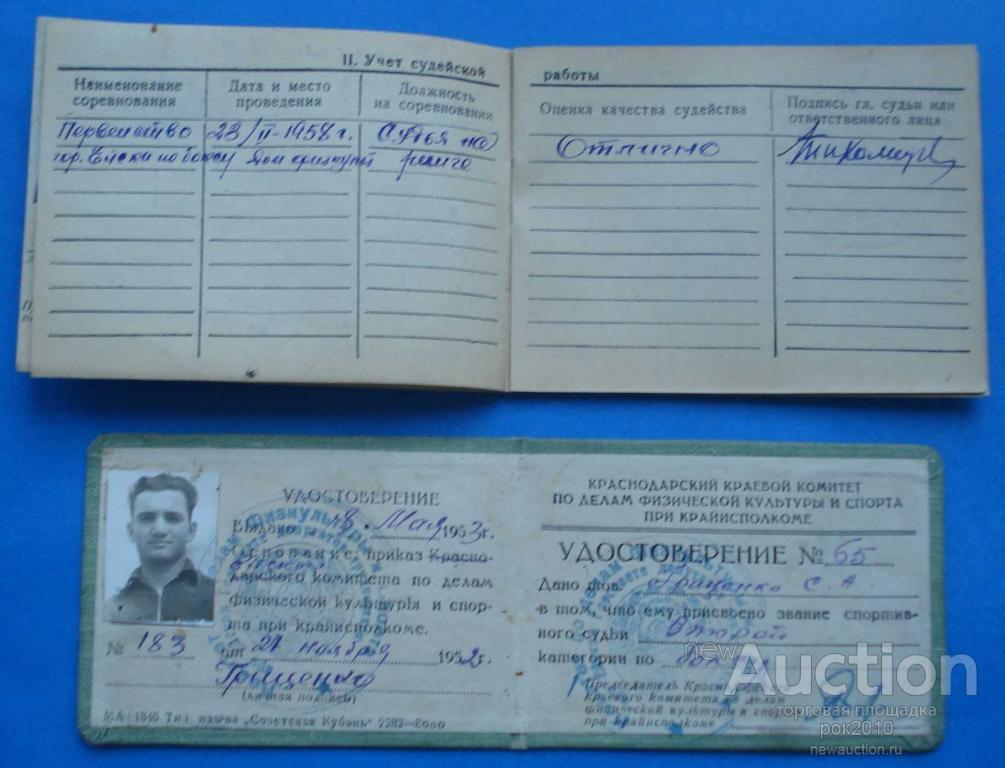 II. Учет судейской работы
Наименование соревнования
Дата и место проведения
Должность на соревновании
Оценка качества судейства
Подпись гл. судьи или ответственного лица
Первенство 23/II-1958 г. Судья на Отлично
гор. Ейска по боксу Дом физкульт ринге
УДОСТОВЕРЕНИЕ
Выдано 8 Мая 1953 г.
Основание: приказ Красно-
дарского комитета по делам
физической культуры и спор-
та при крайисполкоме.
№ 183 от 21 ноября 1952 г.
Грищенко
(личная подпись)
МА 1840 Тип. изд-ва „Советская Кубань" 2282—8000
КРАСНОДАРСКИЙ КРАЕВОЙ КОМИТЕТ
ПО ДЕЛАМ ФИЗИЧЕСКОЙ КУЛЬТУРЫ И СПОРТА
ПРИ КРАЙИСПОЛКОМЕ
УДОСТОВЕРЕНИЕ № 65
Дано тов. Грищенко С. А
в том, что ему присвоено звание спортив-
ного судьи Второй
категории по боксу
Председатель Краснодарского
краевого комитета по делам
физической культуры и спорта
при крайисполкоме
newAuction
торговая площадка
рок2010
newauction.ru